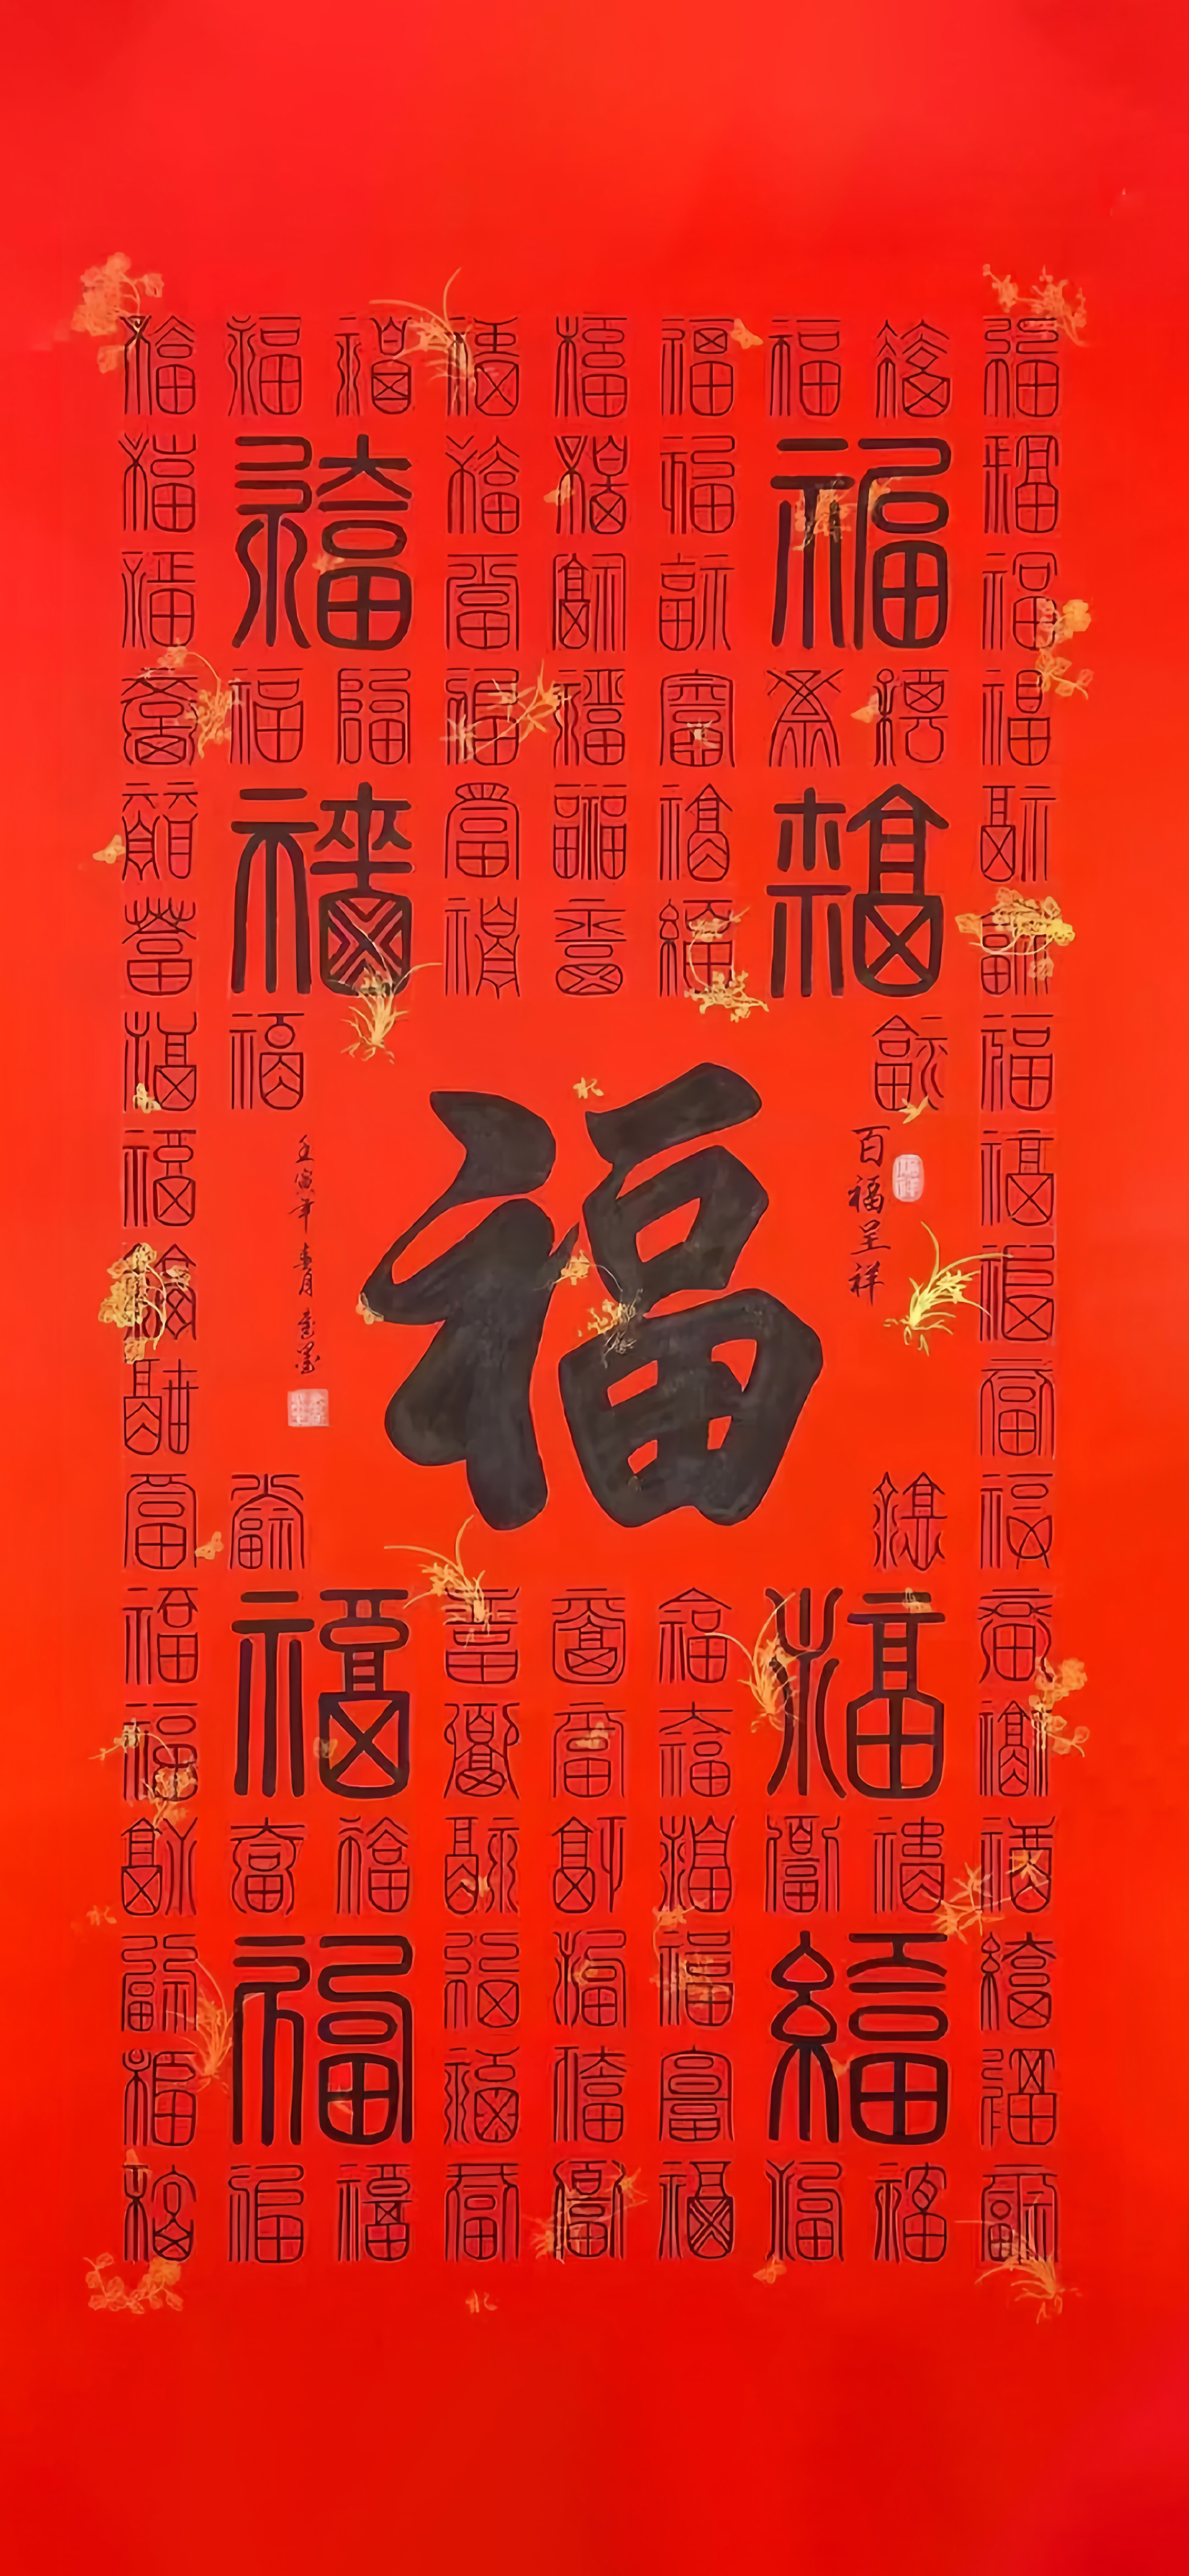 福福福福福福福福福
福福福福福福福
福福福福福
福福福福福福福福福
福福福福福福福
福福福福福
福福福福
福福
福福
福福
福福福福
福
百福呈祥
壬寅年春月
福福福福福福福
福福福福福
福福福福福福福福福
福福福福福福福
福福福福福
福福福福福福福福福